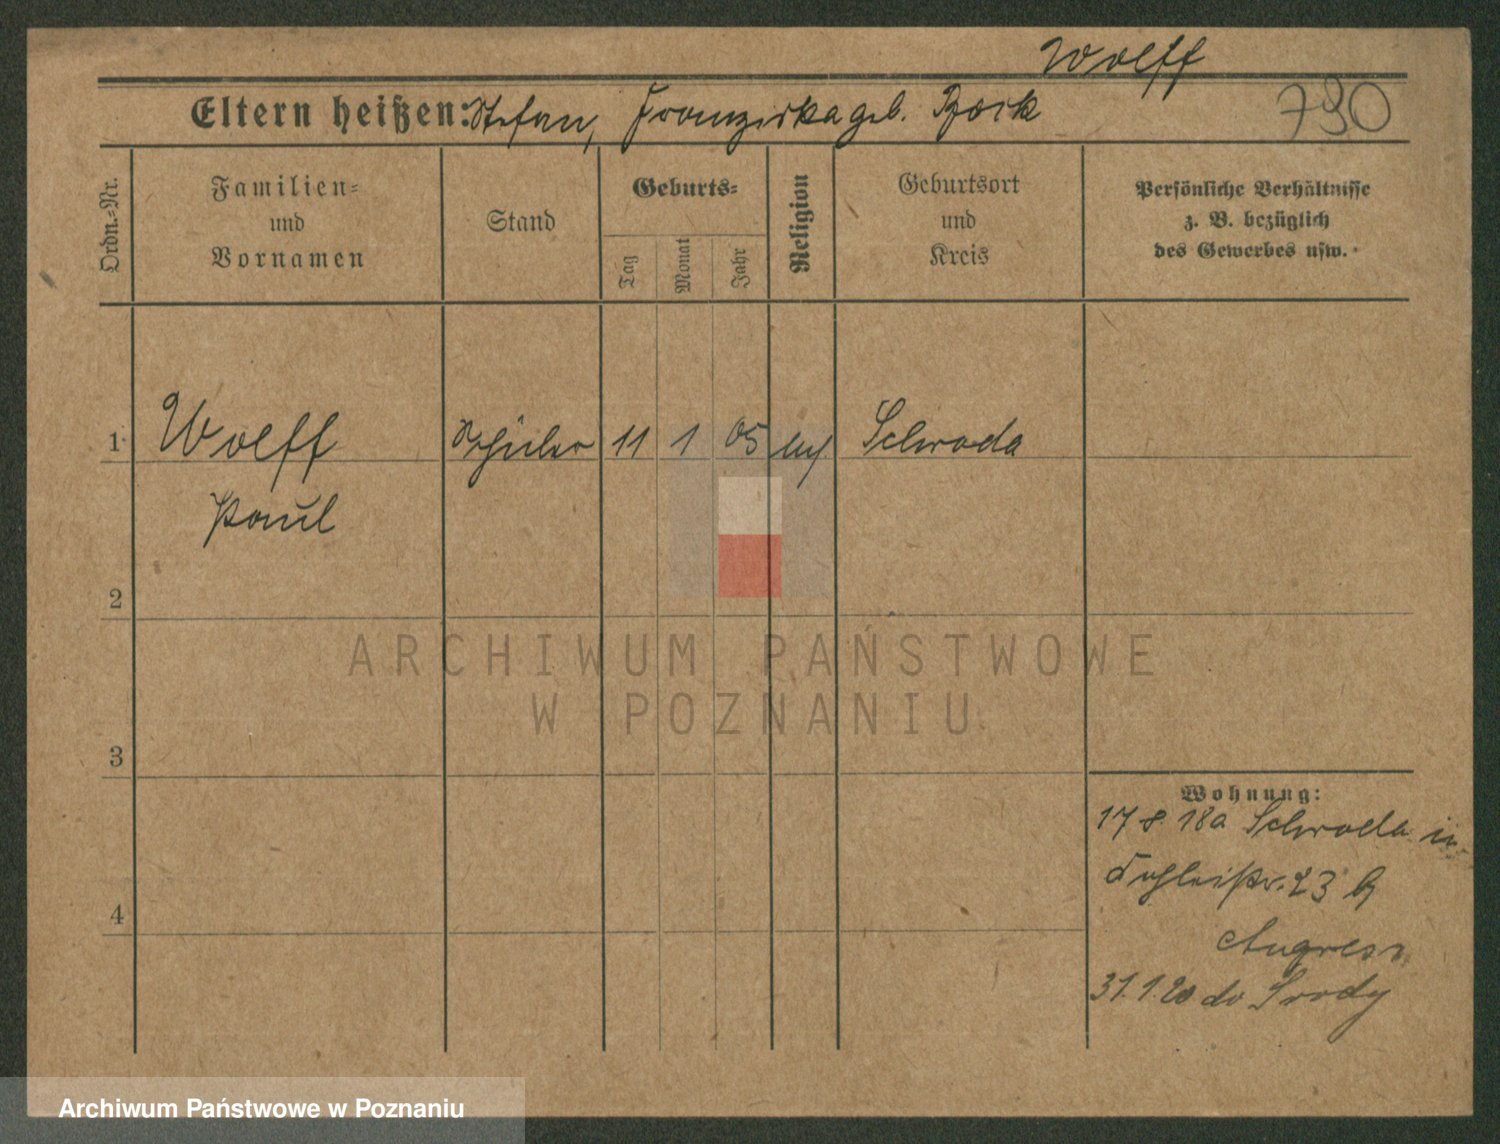 Wolff
Eltern heißen: Stefan, Franziska geb.
790
Ordn.=Nr.
Familien=
und
Vornamen
Stand
Geburts=
Tag
Monat
Jahr
Religion
Geburtsort
und
Kreis
Persönliche Verhältnisse
z. B. bezüglich
des Gewerbes usw.
1 Wolff Schüler 11 1 05 Schroda
Paul
2
ARCHIWUM PAŃSTWOWE
W POZNANIU
3
Wohnung:
17 8 18 a Schroda in
23 b
31.1.20 do Środy
4
Archiwum Państwowe w Poznaniu